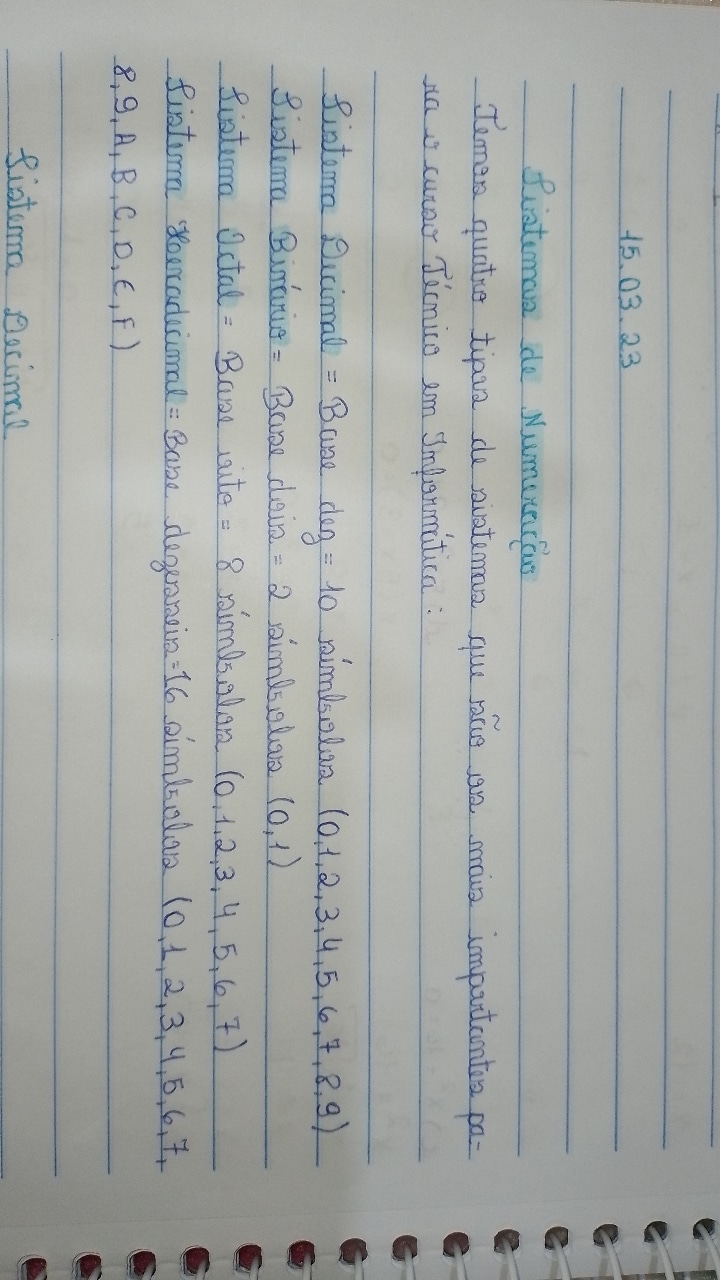 15.03.23
Sistemas de Numeração
Temos quatro tipos de sistemas que são os mais importantes pa-
ra o curso Técnico em Informática:
Sistema Decimal = Base dez = 10 símbolos (0,1,2,3,4,5,6,7,8,9)
Sistema Binário = Base dois = 2 símbolos (0,1)
Sistema Octal = Base oito = 8 símbolos (0,1,2,3,4,5,6,7)
Sistema Hexadecimal = Base dezesseis = 16 símbolos (0,1,2,3,4,5,6,7,
8,9,A,B,C,D,E,F)
Sistema Decimal